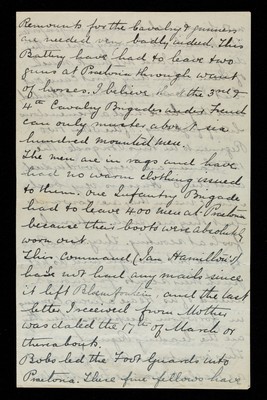 Remounts for the Cavalry & gunners
are needed very badly indeed. This
Battery have had to leave two
guns at Pretoria through want
of horses. I believe that the 3rd &
4th Cavalry Brigades under French
can only muster about six
hundred mounted men.
The men are in rags and have
had no warm clothing issued
to them. One Infantry Brigade
had to leave 400 men at Pretoria
because their boots were absolutely
worn out.
This command (Ian Hamilton's)
have not had any mails since
it left Bloemfontein, and the last
letter I received from Mother
was dated the 17th of March or
thereabouts.
Bobs led the Foot Guards into
Pretoria. These fine fellows have